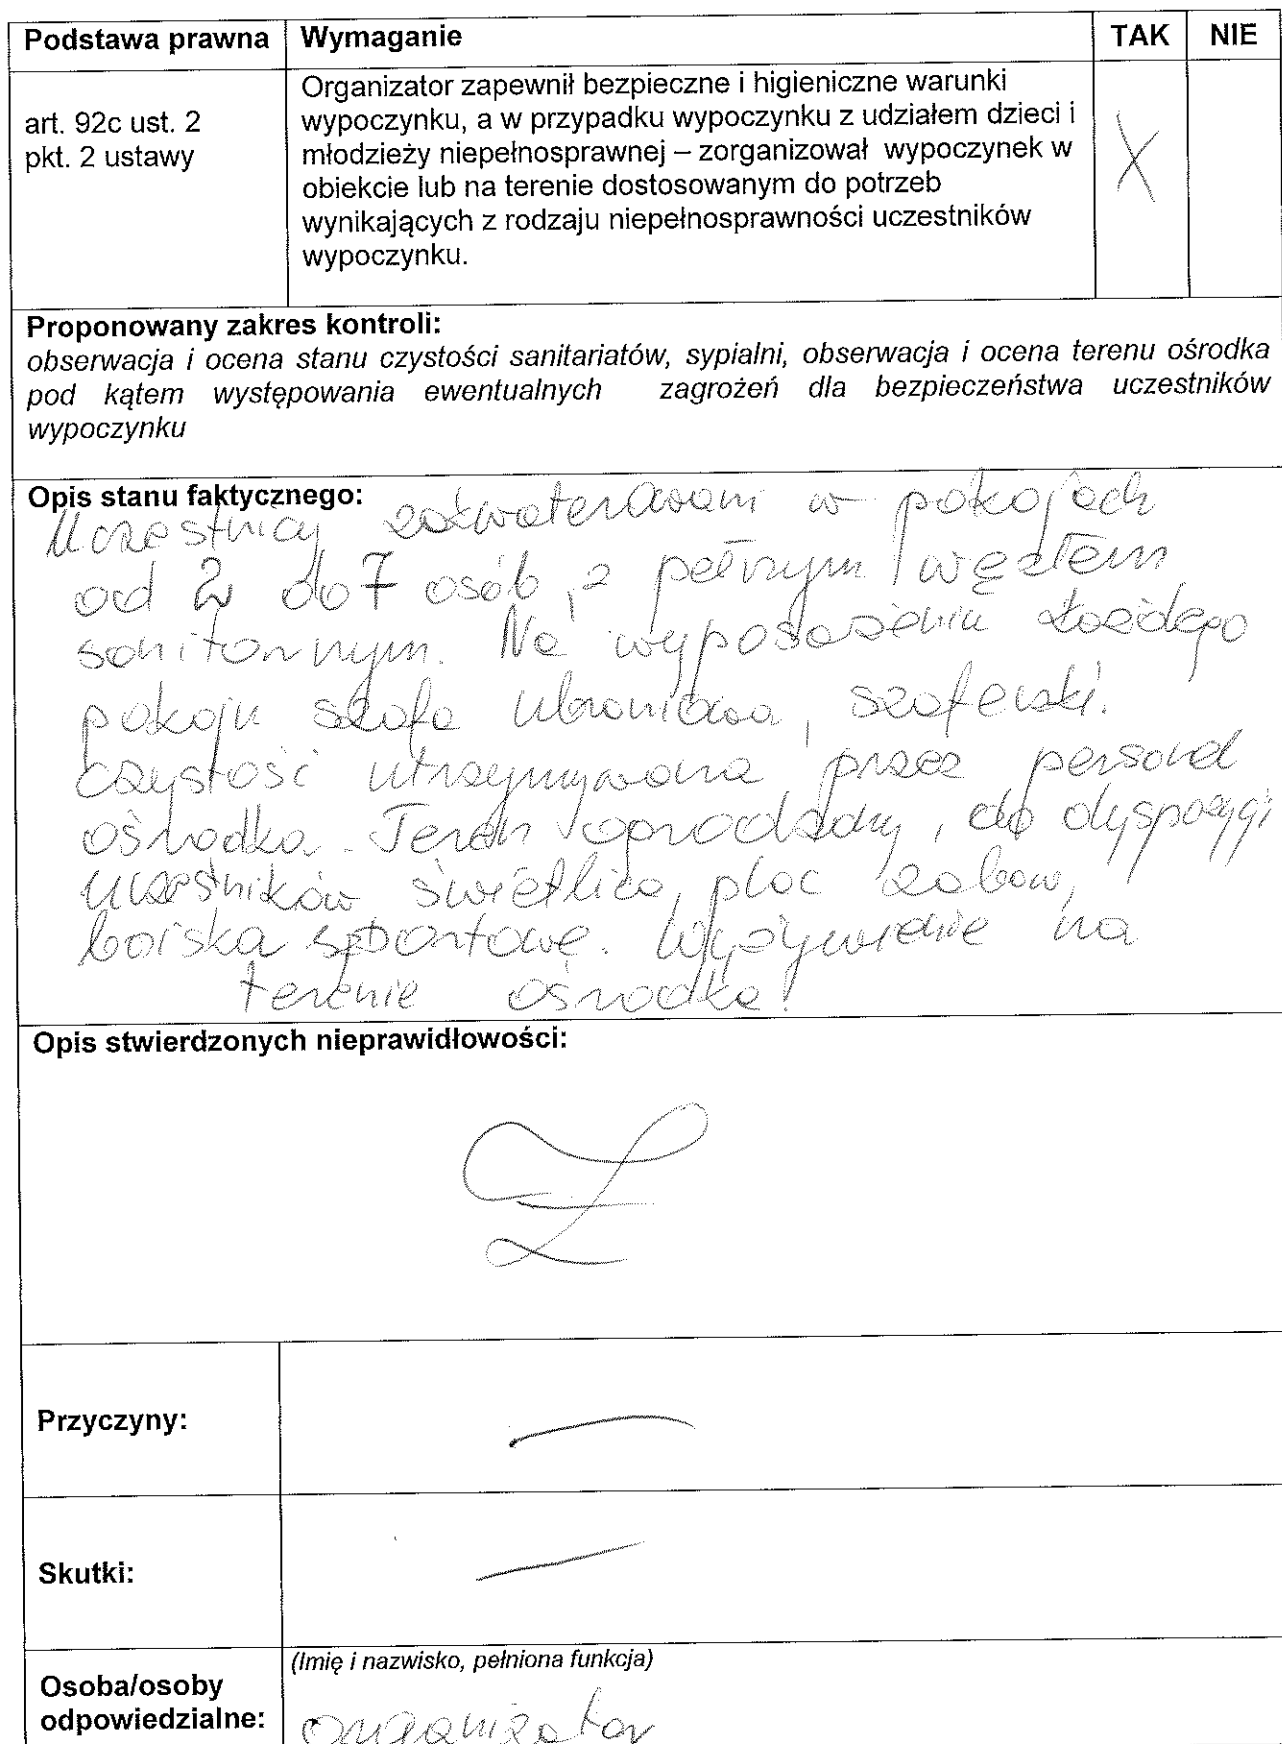 Podstawa prawna Wymaganie TAK NIE
art. 92c ust. 2
pkt. 2 ustawy
Organizator zapewnił bezpieczne i higieniczne warunki
wypoczynku, a w przypadku wypoczynku z udziałem dzieci i
młodzieży niepełnosprawnej – zorganizował wypoczynek w
obiekcie lub na terenie dostosowanym do potrzeb
wynikających z rodzaju niepełnosprawności uczestników
wypoczynku.
X
Proponowany zakres kontroli:
obserwacja i ocena stanu czystości sanitariatów, sypialni, obserwacja i ocena terenu ośrodka
pod kątem występowania ewentualnych zagrożeń dla bezpieczeństwa uczestników
wypoczynku
Opis stanu faktycznego:
Uczestnicy zakwaterowani w pokojach
od 2 do 7 osób, z pełnym węzłem
sanitarnym. Na wyposażeniu każdego
pokoju szafa ubraniowa, szafeczki.
Czystość utrzymywana przez personel
ośrodka. Teren ogrodzony, do dyspozycji
uczestników świetlica, plac zabaw,
boiska sportowe. Wyżywienie na
terenie ośrodka.
Opis stwierdzonych nieprawidłowości:
Przyczyny:
Skutki:
Osoba/osoby
odpowiedzialne:
(Imię i nazwisko, pełniona funkcja)
organizator